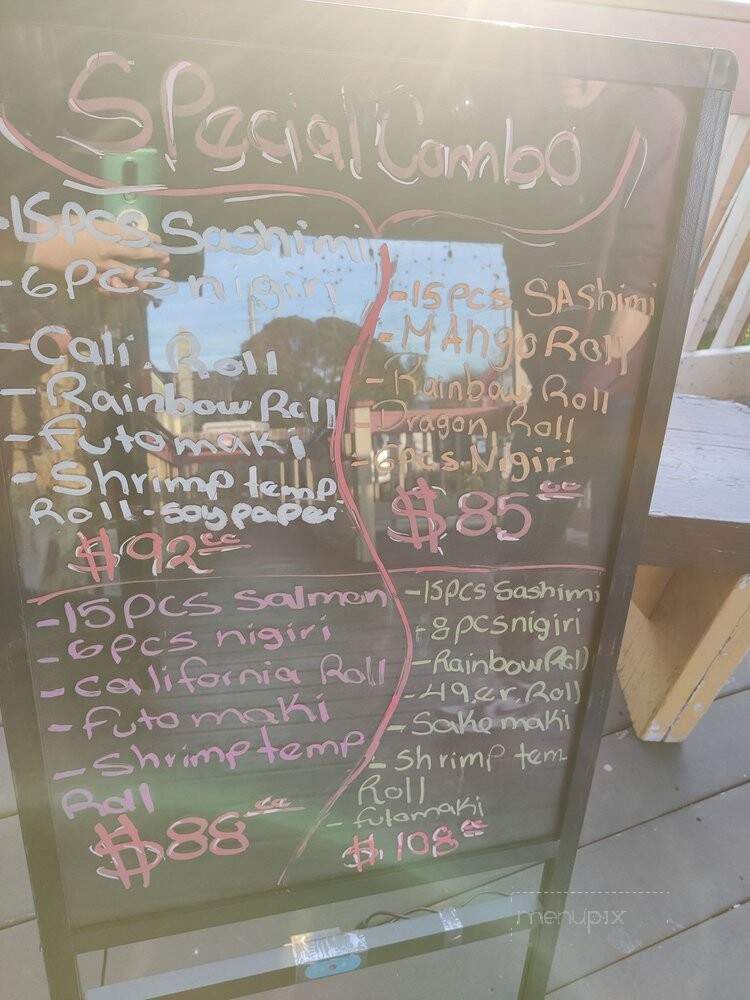 Special Combo
-15pcs Sashimi
-6Pcs nigiri
-Cali Roll
-Rainbow Roll
-Futomaki
-Shrimp temp
Roll-soy paper
$92.00
-15pcs SAshimi
-MAngo Roll
-Rainbow Roll
-Dragon Roll
-6pcs Nigiri
$85.00
-15pcs salmon
-6pcs nigiri
-California Roll
-Futomaki
-Shrimp temp
Roll
$88.00
-15pcs Sashimi
-8pcs nigiri
-Rainbow Roll
-49.er. Roll
-Sake maki
-shrimp tem
Roll
-futomaki
$108.00
menupix